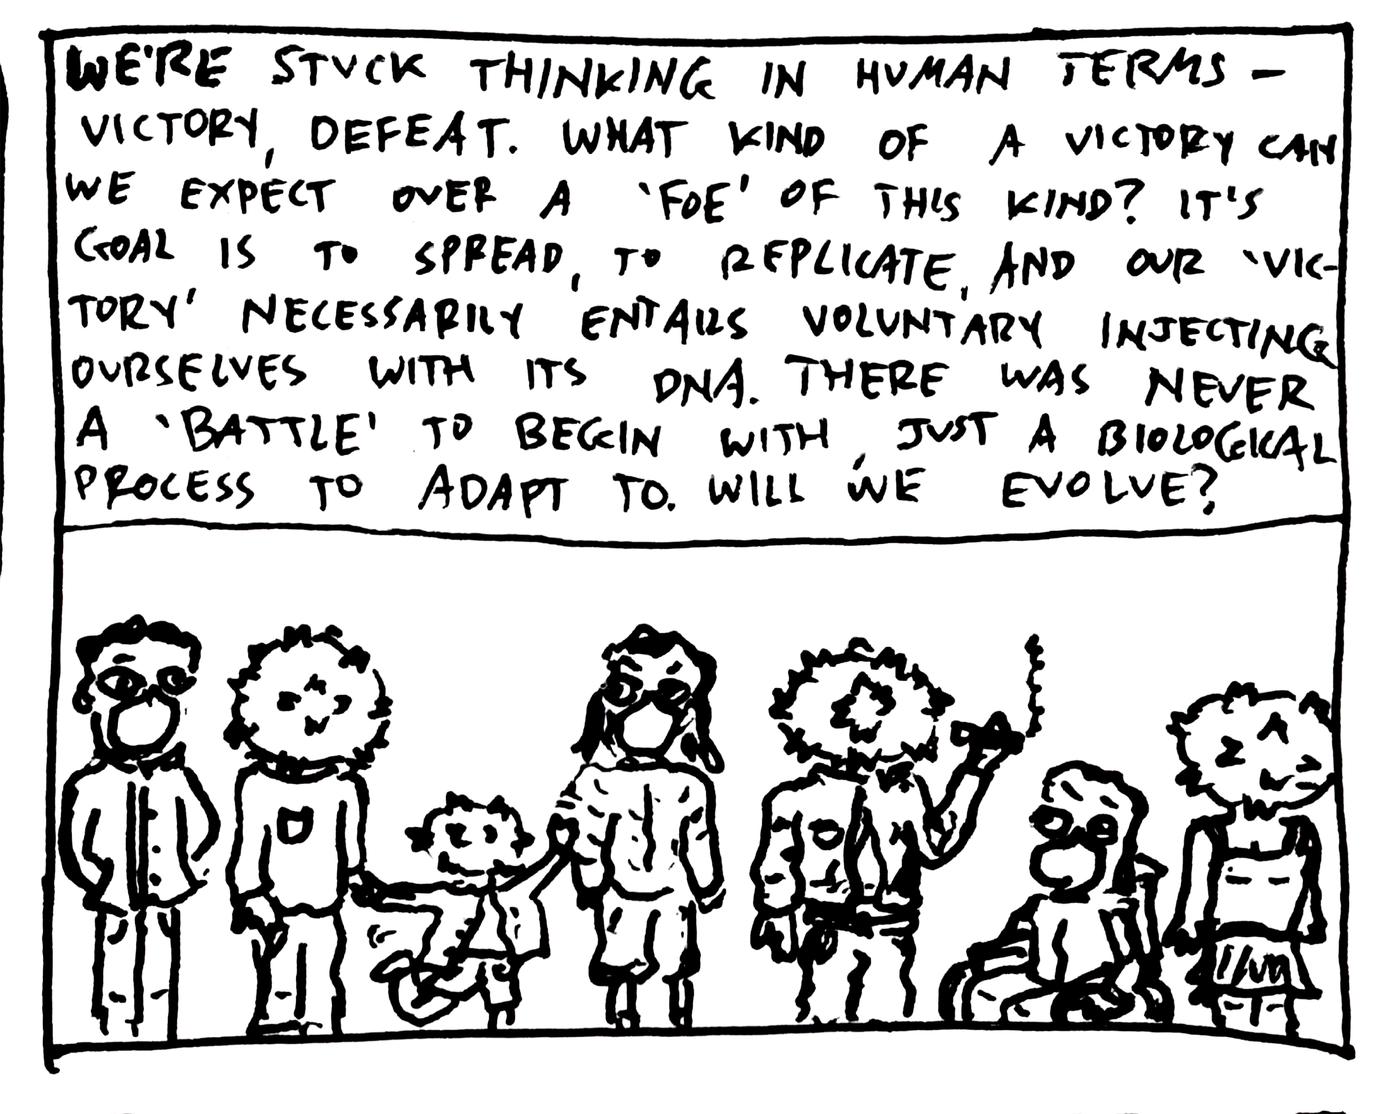 WE'RE STUCK THINKING IN HUMAN TERMS –
VICTORY, DEFEAT. WHAT KIND OF A VICTORY CAN
WE EXPECT OVER A 'FOE' OF THIS KIND? IT'S
GOAL IS TO SPREAD, TO REPLICATE, AND OUR 'VIC-
TORY' NECESSARILY ENTAILS VOLUNTARY INJECTING
OURSELVES WITH ITS DNA. THERE WAS NEVER
A 'BATTLE' TO BEGIN WITH, JUST A BIOLOGICAL
PROCESS TO ADAPT TO. WILL WE EVOLVE?